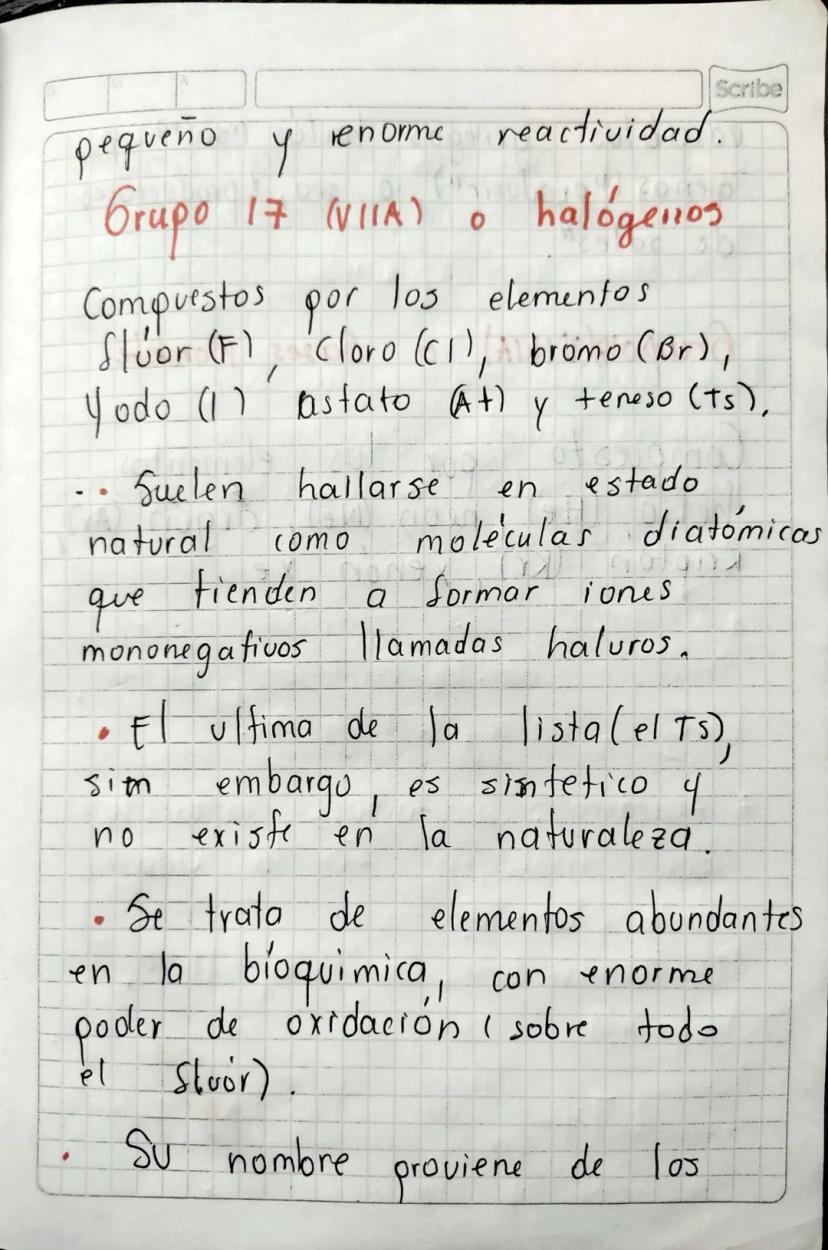 Scribe
pequeño y enorme reactividad.
Grupo 17 (VIIA) o halógenos
Compuestos por los elementos
flúor (F), cloro (Cl), bromo (Br),
Yodo (I) astato (At) y teneso (Ts).
-. Suelen hallarse en estado
natural como moléculas diatómicas
que tienden a formar iones
mononegativos llamadas haluros.
• El ultima de la lista (el Ts),
sim embargo, es sintetico y
no existe en la naturaleza.
• Se trata de elementos abundantes
en la bíoquimica, con enorme
poder de oxidación (sobre todo
el fluór).
• Su nombre proviene de los